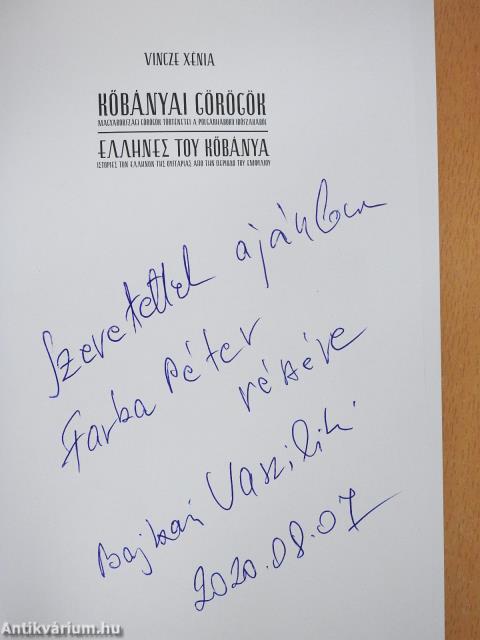 VINCZE XÉNIA
KŐBÁNYAI GÖRÖGÖK
MAGYARORSZÁGI GÖRÖGÖK TÖRTÉNETEI A POLGÁRHÁBORÚ IDŐSZAKÁBÓL
ΕΛΛΗΝΕΣ ΤΟΥ KŐBÁNYA
ΙΣΤΟΡΙΕΣ ΤΩΝ ΕΛΛΗΝΩΝ ΤΗΣ ΟΥΓΓΑΡΙΑΣ ΑΠΟ ΤΗΝ ΠΕΡΙΟΔΟ ΤΟΥ ΕΜΦΥΛΙΟΥ
Szeretettel ajánlom
Farba Péter
részére
Bajkai Vasziliki
2020.08.07
Antikvárium.hu